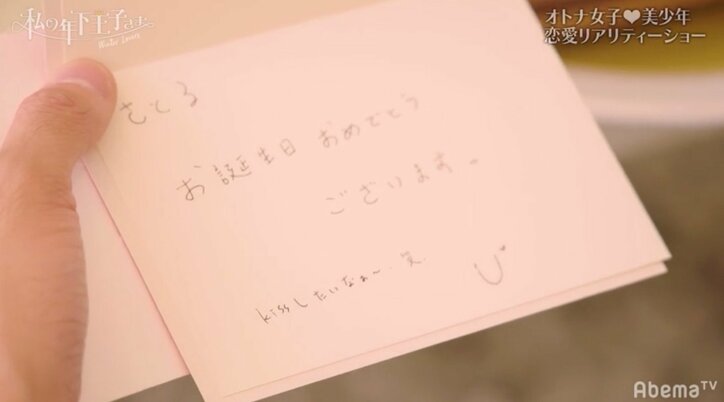 私の年下王子さま
Winter Lovers
オトナ女子♥美少年
恋愛リアリティーショー
さとる
お誕生日 おめでとう
ございます。
kissしたいなぁ〜. 笑
AbemaTV